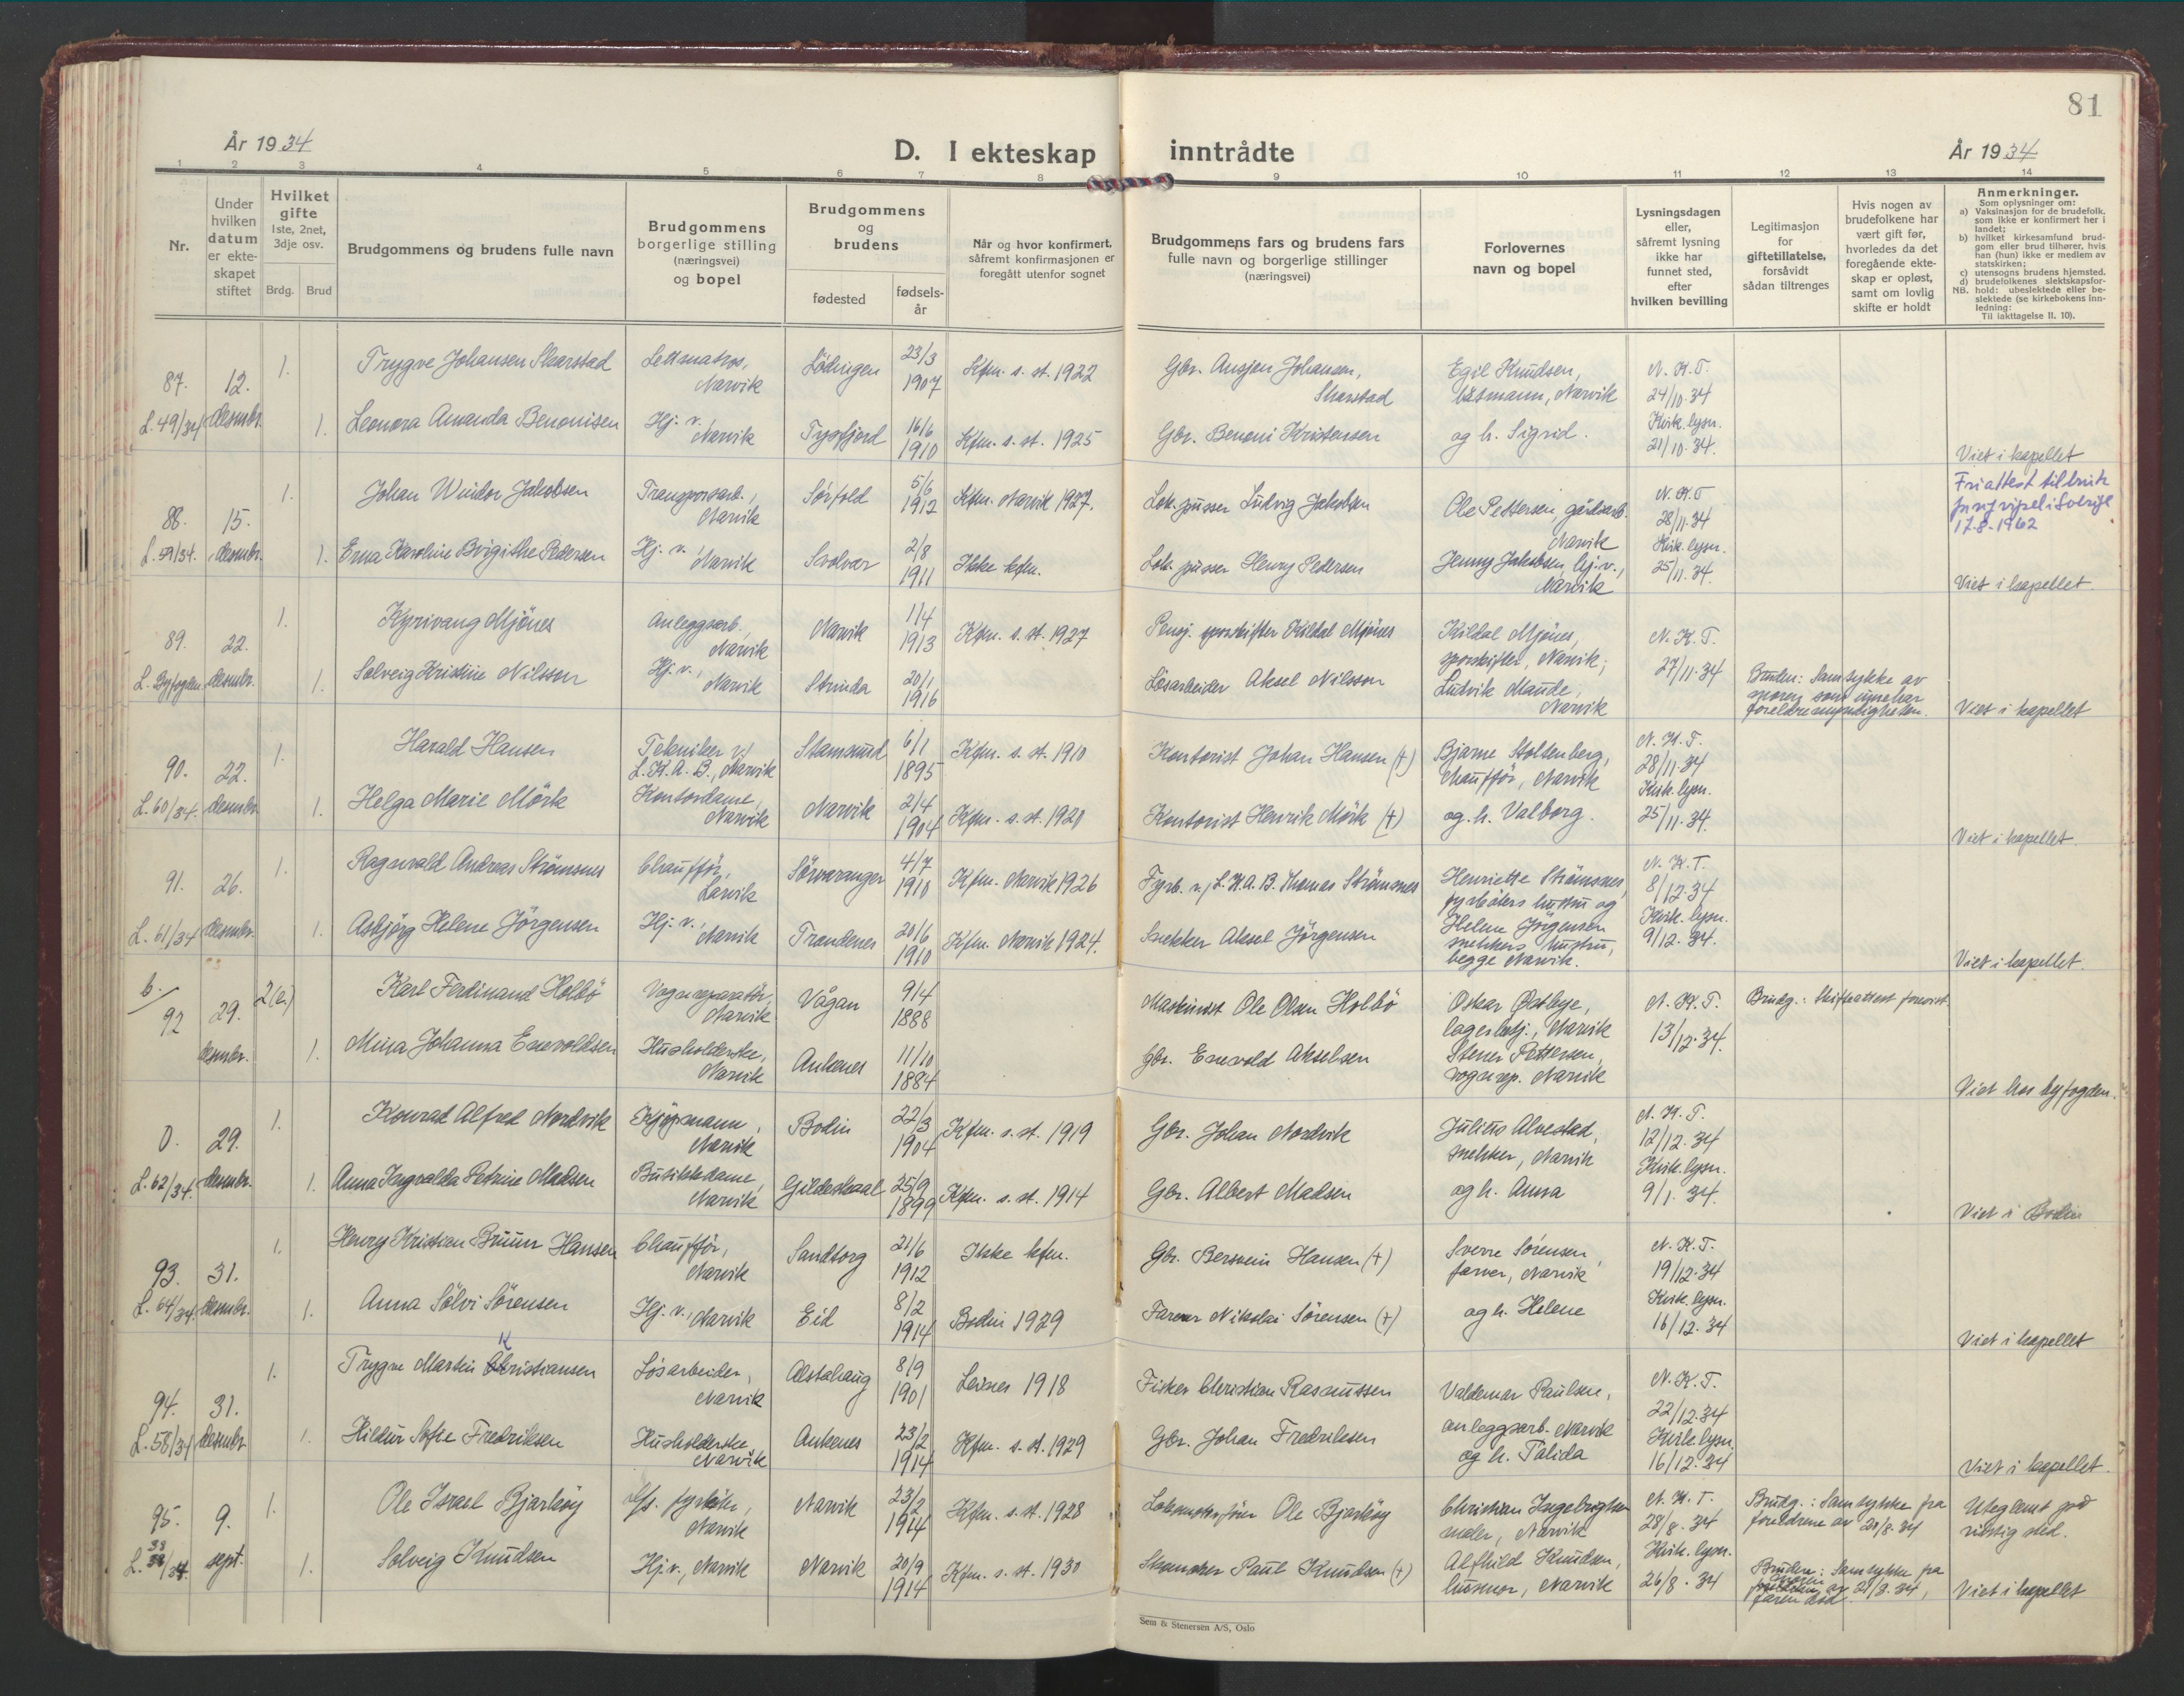 81
År 1934
D. I ekteskap inntrådte
År 1934
1 2 3 4 5 6 7 8 9 10 11 12 13 14
Nr.
Under hvilken datum er ekteskapet stiftet
Hvilket gifte
1ste, 2net, 3dje osv.
Brdg. Brud
Brudgommens og brudens fulle navn
Brudgommens borgerlige stilling (næringsvei) og bopel
Brudgommens og brudens
fødested
fødselsår
Når og hvor konfirmert, såfremt konfirmasjonen er foregått utenfor sognet
Brudgommens fars og brudens fars fulle navn og borgerlige stillinger (næringsvei)
Forlovernes navn og bopel
Lysningsdagen eller, såfremt lysning ikke har funnet sted, efter hvilken bevilling
Legitimasjon for giftetillatelse, forsåvidt sådan tiltrenges
Hvis nogen av brudefolkene har vært gift før, hvorledes da det foregående ekteskap er opløst, samt om lovlig skifte er holdt
Anmerkninger.
Som oplysninger om:
a) Vaksinasjon for de brudefolk, som ikke er konfirmert her i landet;
b) hvilket kirkesamfund brudgom eller brud tilhører, hvis han (hun) ikke er medlem av statskirken;
c) utensogns brudens hjemsted.
d) brudefolkenes slektskapsforhold: ubeslektede eller beslektede (se kirkebokens Innledning:
NB.
Til iakttagelse II. 10).
87. 12. 1. Trygve Johansen Skarstad Lettmatros, Narvik Lödingen 23/3 1907 Kfm. s. st. 1922 Gbr. Ansjen Johansen, Skarstad Egil Knudsen, Narvik N. K. T. 24/10.34
L. 49/34 desmbr. 1. Leonora Amanda Benonisen Hj. v. Narvik Tysfjord 16/6 1910 Kfm. s. st. 1925 Gbr. Benoni Kristensen og h. Sigrid. Kirk. lysn. 21/10.34. Viet i kapellet
88. 15. 1. Johan Windor Jakobsen Transportarb., Narvik Sörfold 5/6 1912 Kfm. Narvik 1927. Lok. pusser Ludvig Jakobsen Ole Pettersen, gårdsarb. Narvik N. K. T 28/11.34 Friattest til bruk
1962
L. 59/34. desmbr. 1. Erna Karoline Birgithe Pedersen Hj. v. Narvik Svolvær 2/8 1911 Ikke kfm. Lok. pusser Henry Pedersen Jenny Jakobsen, hj. v., Narvik Kirk. lysn. 25/11.34. Viet i kapellet.
89. 22. 1. Kyrivang Mjönes Anleggsarb. Narvik Narvik 1/4 1913 Kfm. s. st. 1927 Pensj. sporskifter Kildal Mjönes Kildal Mjönes, sporskifter, Narvik; N. K. T. 27/11.34
L. Byfogden desmbr. 1. Solveig Kristine Nilsson Hj. v., Narvik Strinda 20/1 1916 Lösarbeider Aksel Nilsson Ludvik Maude, Narvik Bruden: Samtykke av moren som innehar foreldremyndigheten. Viet i kapellet
90. 22. 1. Harald Hansen Tekniker v/ L.K.A.B., Narvik Stamsund 6/1 1895 Kfm. s. st. 1910 Kontorist Johan Hansen (+) Bjarne Stoltenberg, chaufför, Narvik N. K. T. 28/11.34
L. 60/34. desmbr. 1. Helga Marie Mörk Kontordame, Narvik Narvik 2/4 1904 Kfm. s. st. 1920 Kontorist Henrik Mörk (+) og h. Valborg. Kirk. lysn. 25/11.34. Viet i kapellet.
91. 26. 1. Ragnvald Andreas Strömsnes Chaufför, Larvik Sörvaranger 4/7 1910 Kfm. Narvik 1926 Fyrb. v/ L.K.A.B. Thomas Strömsnes Henriette Strömsnes, fyrböters hustru og N. K. T. 8/12.34
L. 61/34 desmbr. 1. Asbjörg Helene Jörgensen Hj. v., Narvik Trondenes 20/6 1910 Kfm. Narvik 1924. Snekker Aksel Jörgensen Helene Jörgensen snekkers hustru, begge Narvik. Kirk. lysn. 9/12.34. Viet i kapellet.
b. 92 29. 2(e.) Karl Ferdinand Holbö Vognreparatör, Narvik Vågan 9/4 1888 Maskinist Ole Olsen Holbö Oskar Østbye, lagerbetj., Narvik N. K. T. 13/12.34. Brudg.: Skifteattest forevist.
desmbr. 1. Mina Johanna Enevoldsen Husholderske, Narvik Ankenes 11/10 1884 Gbr. Enevold Akselsen Stener Pettersen, vognrep. Narvik Viet hos byfogden.
0. 29. 1. Konrad Alfred Nordvik Kjöpmann, Narvik Bodin 22/3 1904 Kfm. s. st. 1919 Gbr. Johan Nordvik Julius Alvestad, snekker, Narvik N. K. T. 12/12.34
L. 62/34. desmbr. 1. Anna Ingvalda Petrine Madsen Butikkdame, Narvik Gildeskaal 25/9 1899 Kfm. s. st. 1914 Gbr. Albert Madsen og h. Anna Kirk. lysn. 9/1.34. Viet i Bodin
93. 31. 1. Henry Kristian Bruun Hansen Chaufför, Narvik Sandtorg 21/6 1912 Ikke kfm. Gbr. Bersvein Hansen (+) Sverre Sörensen, farver, Narvik N. K. T. 19/12.34
L. 64/34. desmbr. 1. Anna Sölvi Sörensen Hj. v., Narvik Eid 8/2 1914 Bodin 1929 Farver Nikolai Sörensen (+) og h. Helene Kirk. lysn. 16/12.34 Viet i kapellet
94. 31. 1. Trygve Martin Kristiansen Lösarbeider, Narvik Alstahaug 8/9 1901 Leines 1918 Fisker Christian Rasmussen Valdemar Paulsen, N. K. T. 22/12.34
L. 58/34 desmbr 1. Hildur Sofie Fredriksen Husholderske, Narvik Ankenes 23/2 1914 Kfm. s. st. 1929 Gbr. Johan Fredriksen anleggsarb. Narvik og h. Talida Kirk. lysn. 16/12.34 Viet i kapellet.
95. 9. 1. Ole Israel Bjarköy fyrböter, Narvik Narvik 23/2 1914 Kfm. s. st. 1928 Lokomotivförer Ole Bjarköy Christian Ingebrigtsen maler, Narvik N. K. T. 28/8.34 Brudg.: Samtykke fra foreldrene av 21/8.34 Uteglemt på riktig sted.
L. 38/34. sept. 1. Solveig Knudsen Hj. v., Narvik Narvik 20/9 1914 Kfm. s. st. 1930 Skomaker Paul Knudsen (+) Alfhild Knudsen, husmor, Narvik Kirk. lysn. 26/8.34 Bruden: Samtykke fra moren av 21/8.34, faren död. Viet i kapellet
Sem & Stenersen A/S, Oslo